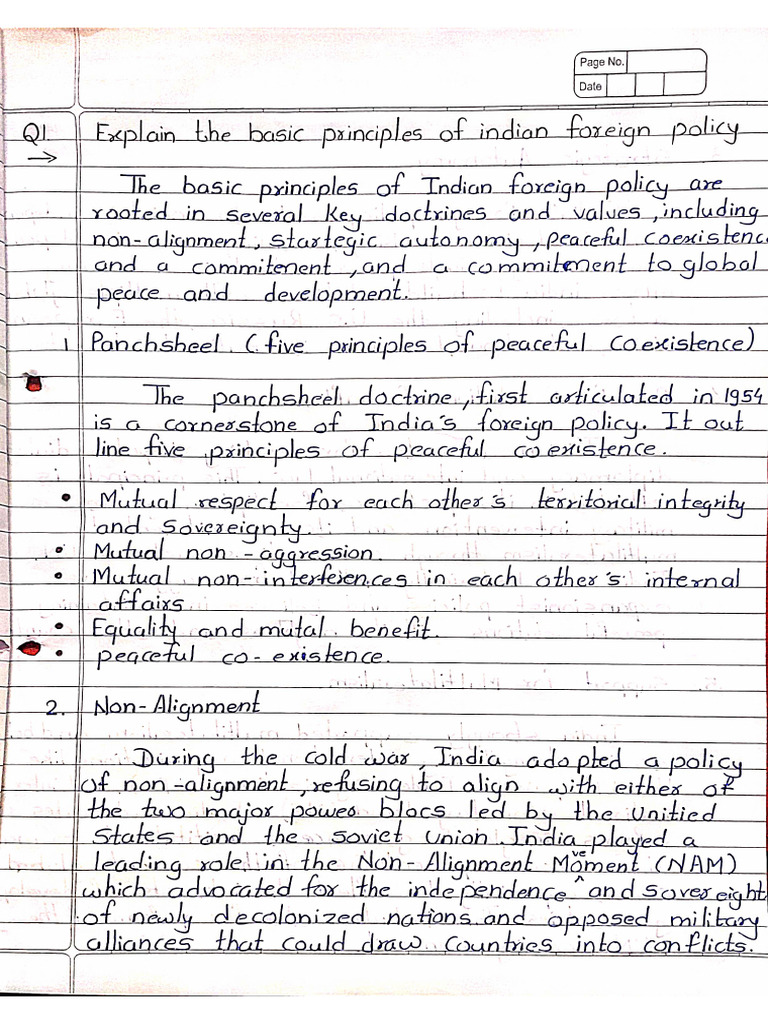 Page No.
Date
Q1. Explain the basic principles of indian foreign policy
→
The basic principles of Indian foreign policy are
rooted in several key doctrines and values, including
non-alignment, startegic autonomy, peaceful coexistenc
and a commitenent, and a commitment to global
peace and development.
1 Panchsheel (five principles of peaceful coexistence)
The panchsheel doctrine, first articulated in 1954
is a cornerstone of India's foreign policy. It out
line five principles of peaceful coexistence.
• Mutual respect for each other's territorial integrity
and sovereignty.
• Mutual non-aggression.
• Mutual non-interferences in each other's internal
affairs
• Equality and mutal benefit.
• peaceful co-existence.
2. Non-Alignment
During the cold war, India adopted a policy
of non-alignment, refusing to align with either of
the two major power blocs led by the Unitied
States and the soviet union. India played a
leading role in the Non-Alignment Moment (NAM)
ve
which advocated for the independence ^ and sovereight
of newly decolonized nations and opposed military
alliances that could draw countries into conflicts.